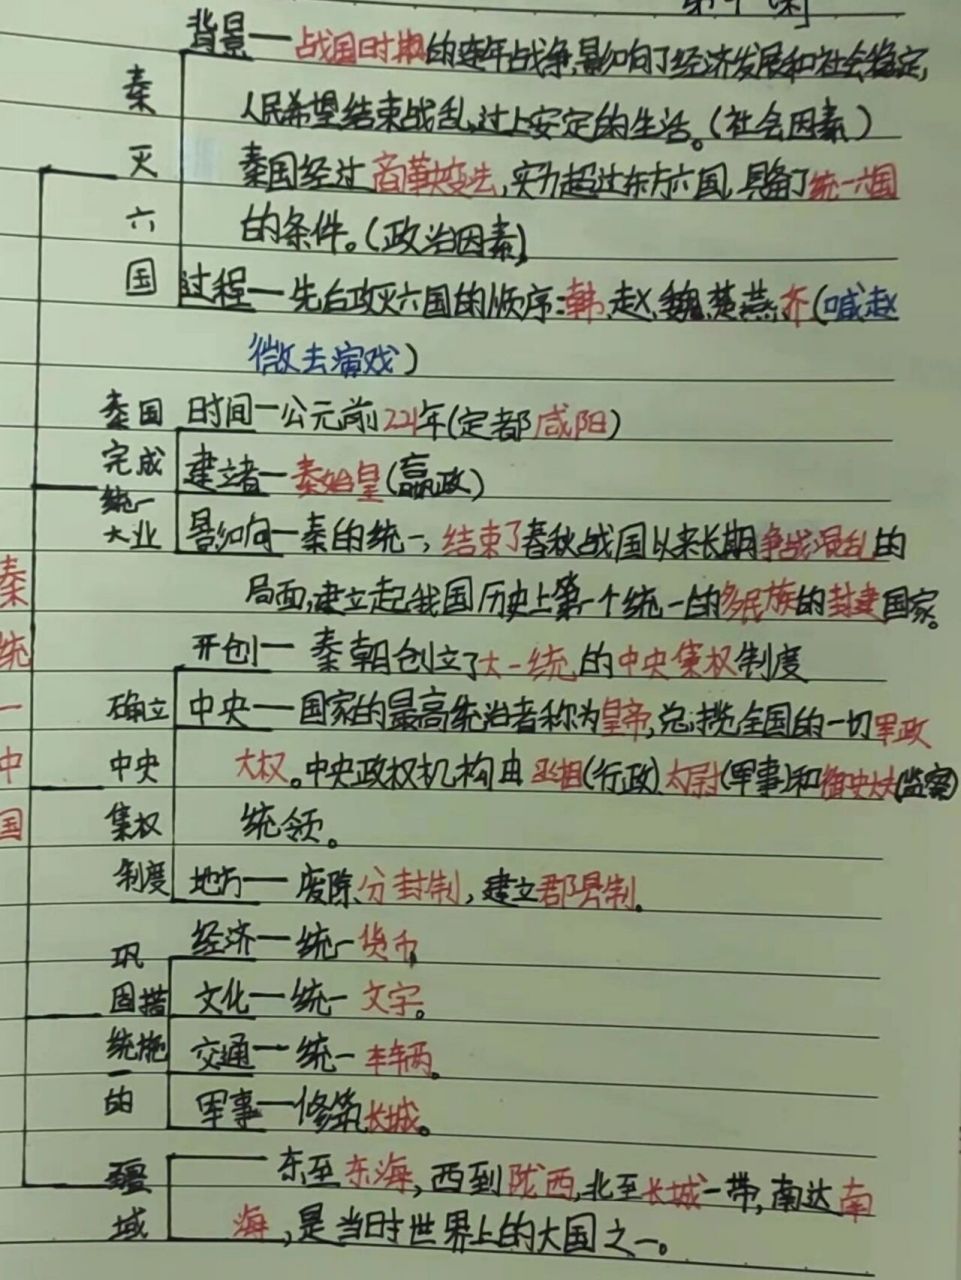 背景一战国时期的连年战争,影响了经济发展和社会稳定,
人民希望结束战乱,过上安定的生活。(社会因素)
秦国经过商鞅变法,实力超过东方六国,具备了统一六国
的条件。(政治因素)
秦灭六国
过程一先后攻灭六国的顺序:韩、赵、魏、楚、燕、齐(喊赵
微去演戏)
秦国完成统一大业
时间一公元前221年(定都咸阳)
建立者一秦始皇(嬴政)
影响一秦的统一,结束了春秋战国以来长期争战混乱的
局面,建立起我国历史上第一个统一的多民族的封建国家。
秦统一中国
开创一秦朝创立了大一统的中央集权制度
确立中央集权制度
中央一国家的最高统治者称为皇帝,总揽全国的一切军政
大权。中央政权机构由丞相(行政)太尉(军事)和御史大夫(监察)
统领。
地方一废除分封制,建立郡县制。
巩固统一的措施
经济一统一货币
文化一统一文字。
交通一统一车辆。
军事一修筑长城。
疆域
东至东海,西到陇西,北至长城一带,南达南
海,是当时世界上的大国之一。